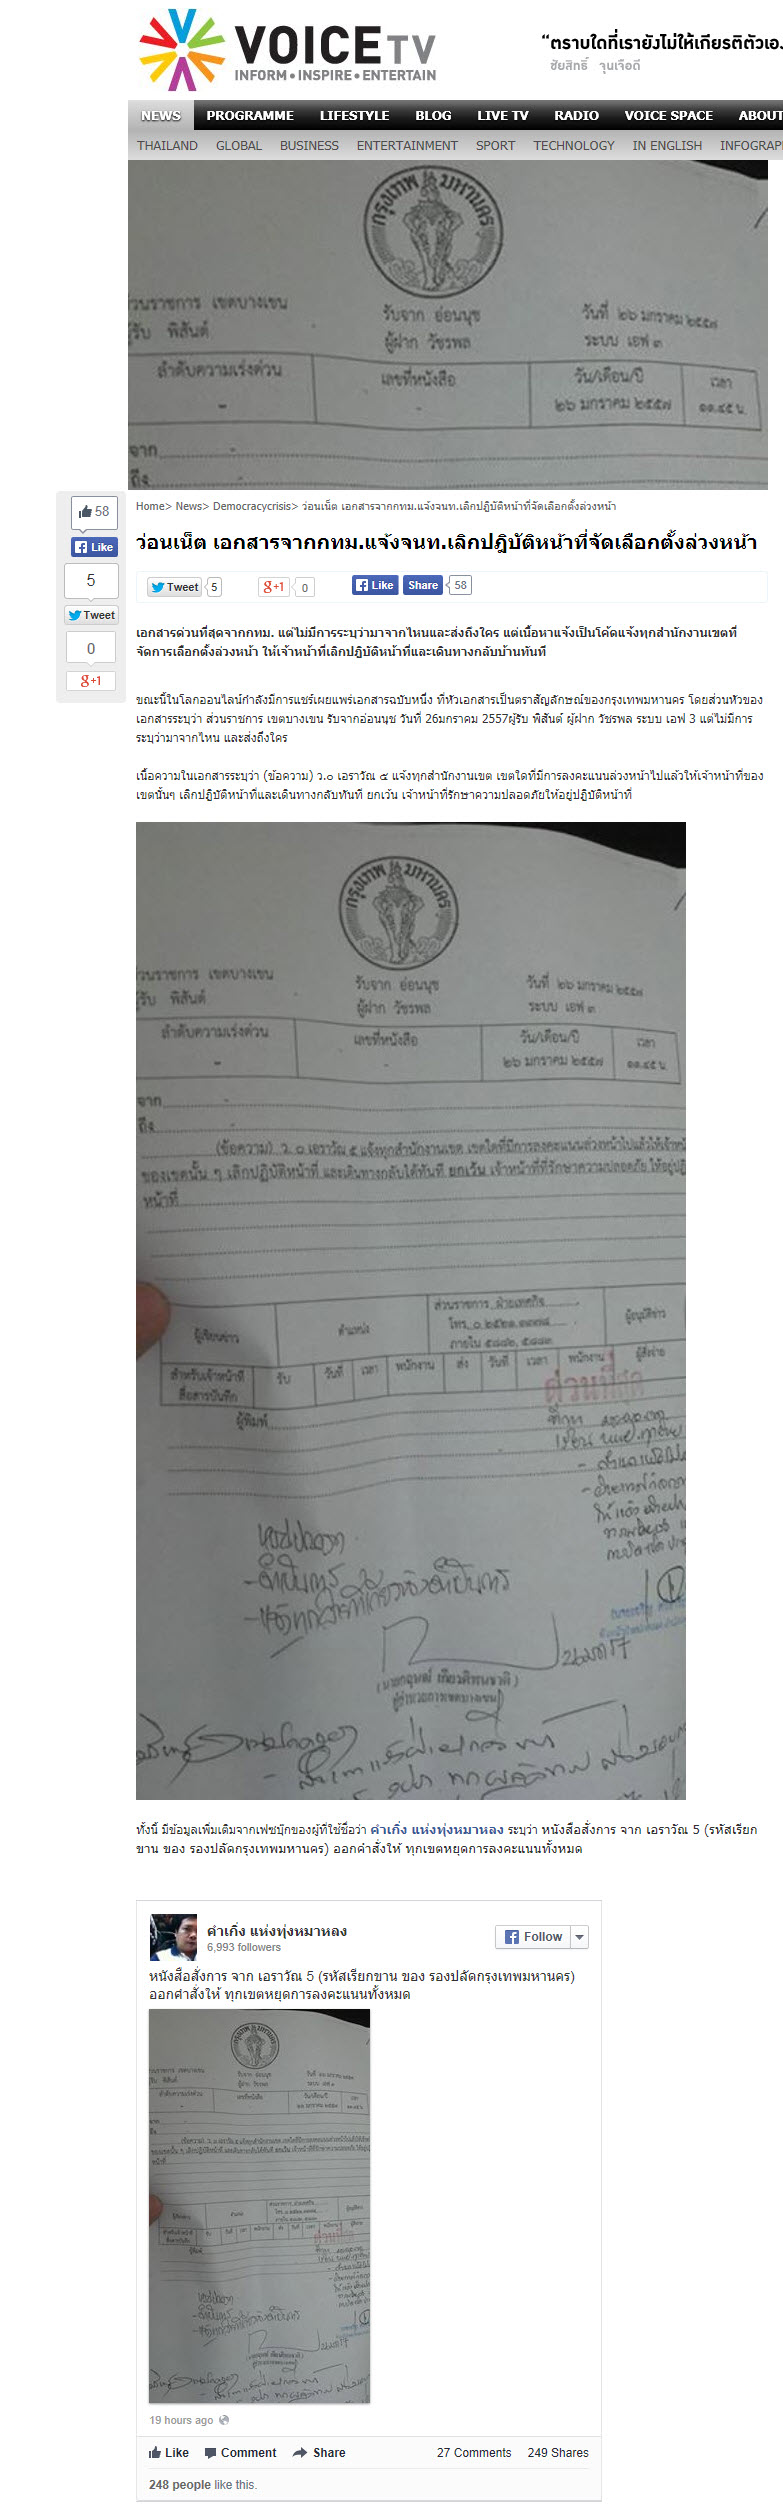 VOICE TV
INFORM • INSPIRE • ENTERTAIN
“ตราบใดที่เรายังไม่ให้เกียรติตัวเอง
ชัยสิทธิ์ จุนเจือดี
NEWS PROGRAMME LIFESTYLE BLOG LIVE TV RADIO VOICE SPACE ABOUT
THAILAND GLOBAL BUSINESS ENTERTAINMENT SPORT TECHNOLOGY IN ENGLISH INFOGRAP
กรุงเทพมหานคร
ส่วนราชการ เขตบางเขน รับจาก อ่อนนุช วันที่ ๒๖ มกราคม ๒๕๕๗
ผู้รับ พิสันต์ ผู้ฝาก วัชรพล ระบบ เอฟ ๓
ลำดับความเร่งด่วน เลขที่หนังสือ วัน/เดือน/ปี เวลา
- - ๒๖ มกราคม ๒๕๕๗ ๑๑.๔๕ น.
จาก
ถึง
58
Like
5
Tweet
0
g+1
Home> News> Democracycrisis> ว่อนเน็ต เอกสารจากกทม.แจ้งจนท.เลิกปฎิบัติหน้าที่จัดเลือกตั้งล่วงหน้า
ว่อนเน็ต เอกสารจากกทม.แจ้งจนท.เลิกปฎิบัติหน้าที่จัดเลือกตั้งล่วงหน้า
Tweet 5 g+1 0 Like Share 58
เอกสารด่วนที่สุดจากกทม. แต่ไม่มีการระบุว่ามาจากไหนและส่งถึงใคร แต่เนื้อหาแจ้งเป็นโค้ดแจ้งทุกสำนักงานเขตที่
จัดการเลือกตั้งล่วงหน้า ให้เจ้าหน้าที่เลิกปฎิบัติหน้าที่และเดินทางกลับบ้านทันที
ขณะนี้ในโลกออนไลน์กำลังมีการแชร์เผยแพร่เอกสารฉบับหนึ่ง ที่หัวเอกสารเป็นตราสัญลักษณ์ของกรุงเทพมหานคร โดยส่วนหัวของ
เอกสารระบุว่า ส่วนราชการ เขตบางเขน รับจากอ่อนนุช วันที่ 26มกราคม 2557ผู้รับ พิสันต์ ผู้ฝาก วัชรพล ระบบ เอฟ 3 แต่ไม่มีการ
ระบุว่ามาจากไหน และส่งถึงใคร
เนื้อความในเอกสารระบุว่า (ข้อความ) ว.๐ เอราวัณ ๕ แจ้งทุกสำนักงานเขต เขตใดที่มีการลงคะแนนล่วงหน้าไปแล้วให้เจ้าหน้าที่ของ
เขตนั้นๆ เลิกปฎิบัติหน้าที่และเดินทางกลับทันที ยกเว้น เจ้าหน้าที่รักษาความปลอดภัยให้อยู่ปฎิบัติหน้าที่
กรุงเทพมหานคร
ส่วนราชการ เขตบางเขน รับจาก อ่อนนุช วันที่ ๒๖ มกราคม ๒๕๕๗
ผู้รับ พิสันต์ ผู้ฝาก วัชรพล ระบบ เอฟ ๓
ลำดับความเร่งด่วน เลขที่หนังสือ วัน/เดือน/ปี เวลา
- - ๒๖ มกราคม ๒๕๕๗ ๑๑.๔๕ น.
จาก
ถึง
(ข้อความ) ว. ๐ เอราวัณ ๕ แจ้งทุกสำนักงานเขต เขตใดที่มีการลงคะแนนล่วงหน้าไปแล้วให้เจ้าหน้
ของเขตนั้น ๆ เลิกปฏิบัติหน้าที่ และเดินทางกลับได้ทันที ยกเว้น เจ้าหน้าที่ที่รักษาความปลอดภัย ให้อยู่ปฏิ
หน้าที่
ส่วนราชการ ฝ่ายเทศกิจ
ผู้เขียนข่าว ตำแหน่ง โทร. ผู้อนุมัติข่าว
ภายใน
สำหรับเจ้าหน้าที่ รับ วันที่ เวลา พนักงาน ส่ง วันที่ เวลา พนักงาน ผู้สั่งจ่าย
สื่อสารบันทึก
ด่วนที่สุด
ผู้พิมพ์
ผู้อำนวยการเขตบางเขน
ทั้งนี้ มีข้อมูลเพิ่มเติมจากเฟซบุ๊กของผู้ที่ใช้ชื่อว่า คำเกิ่ง แห่งทุ่งหมาหลง ระบุว่า หนังสือสั่งการ จาก เอราวัณ 5 (รหัสเรียก
ขาน ของ รองปลัดกรุงเทพมหานคร) ออกคำสั่งให้ ทุกเขตหยุดการลงคะแนนทั้งหมด
คำเกิ่ง แห่งทุ่งหมาหลง
6,993 followers
Follow
หนังสือสั่งการ จาก เอราวัณ 5 (รหัสเรียกขาน ของ รองปลัดกรุงเทพมหานคร)
ออกคำสั่งให้ ทุกเขตหยุดการลงคะแนนทั้งหมด
19 hours ago
Like Comment Share 27 Comments 249 Shares
248 people like this.